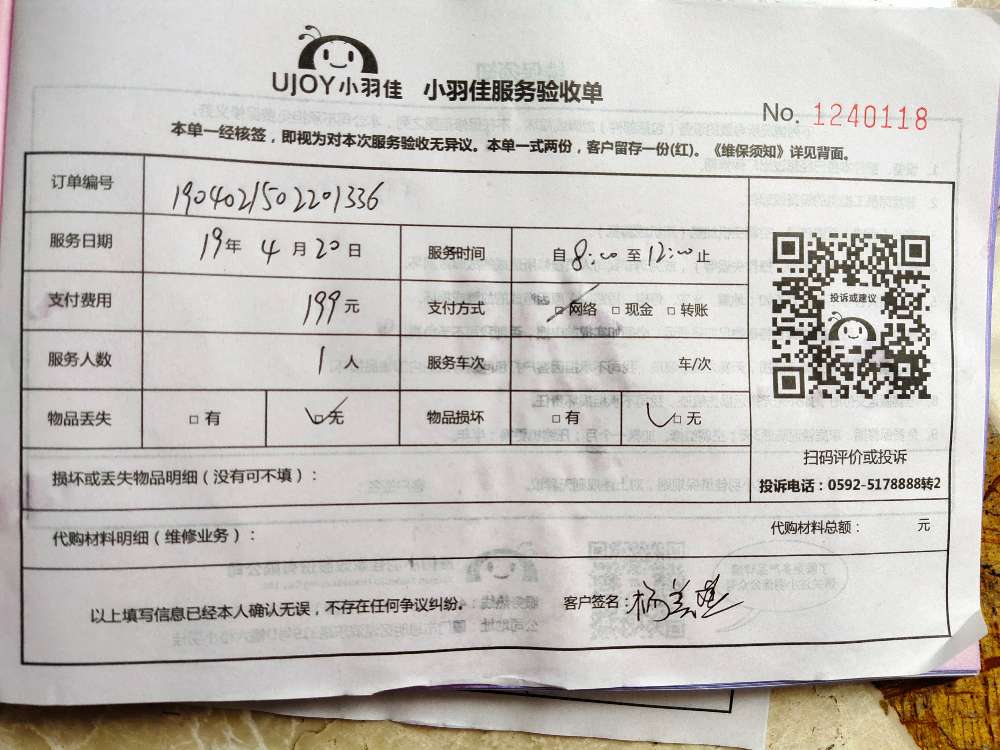 UJOY小羽佳 小羽佳服务验收单
No. 1240118
本单一经核签，即视为对本次服务验收无异议。本单一式两份，客户留存一份(红)。《维保须知》详见背面。
订单编号 1904021502201336
服务日期 19年 4月 20日 服务时间 自8:00至12:00止
支付费用 199元 支付方式 □网络 □现金 □转账
服务人数 1人 服务车次 车/次
物品丢失 □有 □无 物品损坏 □有 □无
投诉或建议
扫码评价或投诉
投诉电话：0592-5178888转2
损坏或丢失物品明细（没有可不填）：
代购材料明细（维修业务）： 代购材料总额： 元
以上填写信息已经本人确认无误，不存在任何争议纠纷。 客户签名：杨